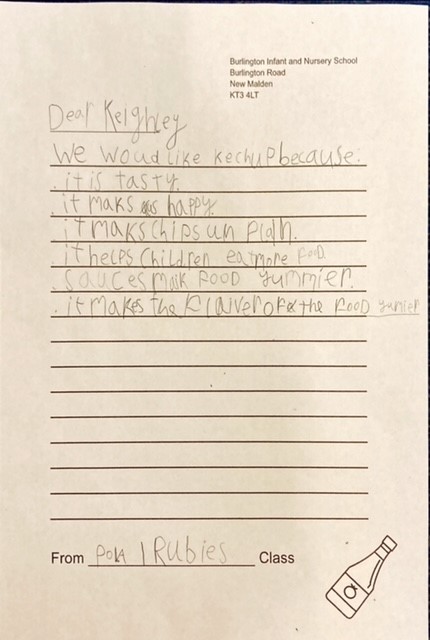 Burlington Infant and Nursery School
Burlington Road
New Malden
KT3 4LT
Dear Keighley
We Woud like kechup because:
. it is tasty.
. it maks us happy.
it maks chips un plain.
. it helps Children eat more food
. Sauces mak FOOD yummier.
. it makes the Flaiver of the FOOD yamier
From Pola 1 Rubies Class